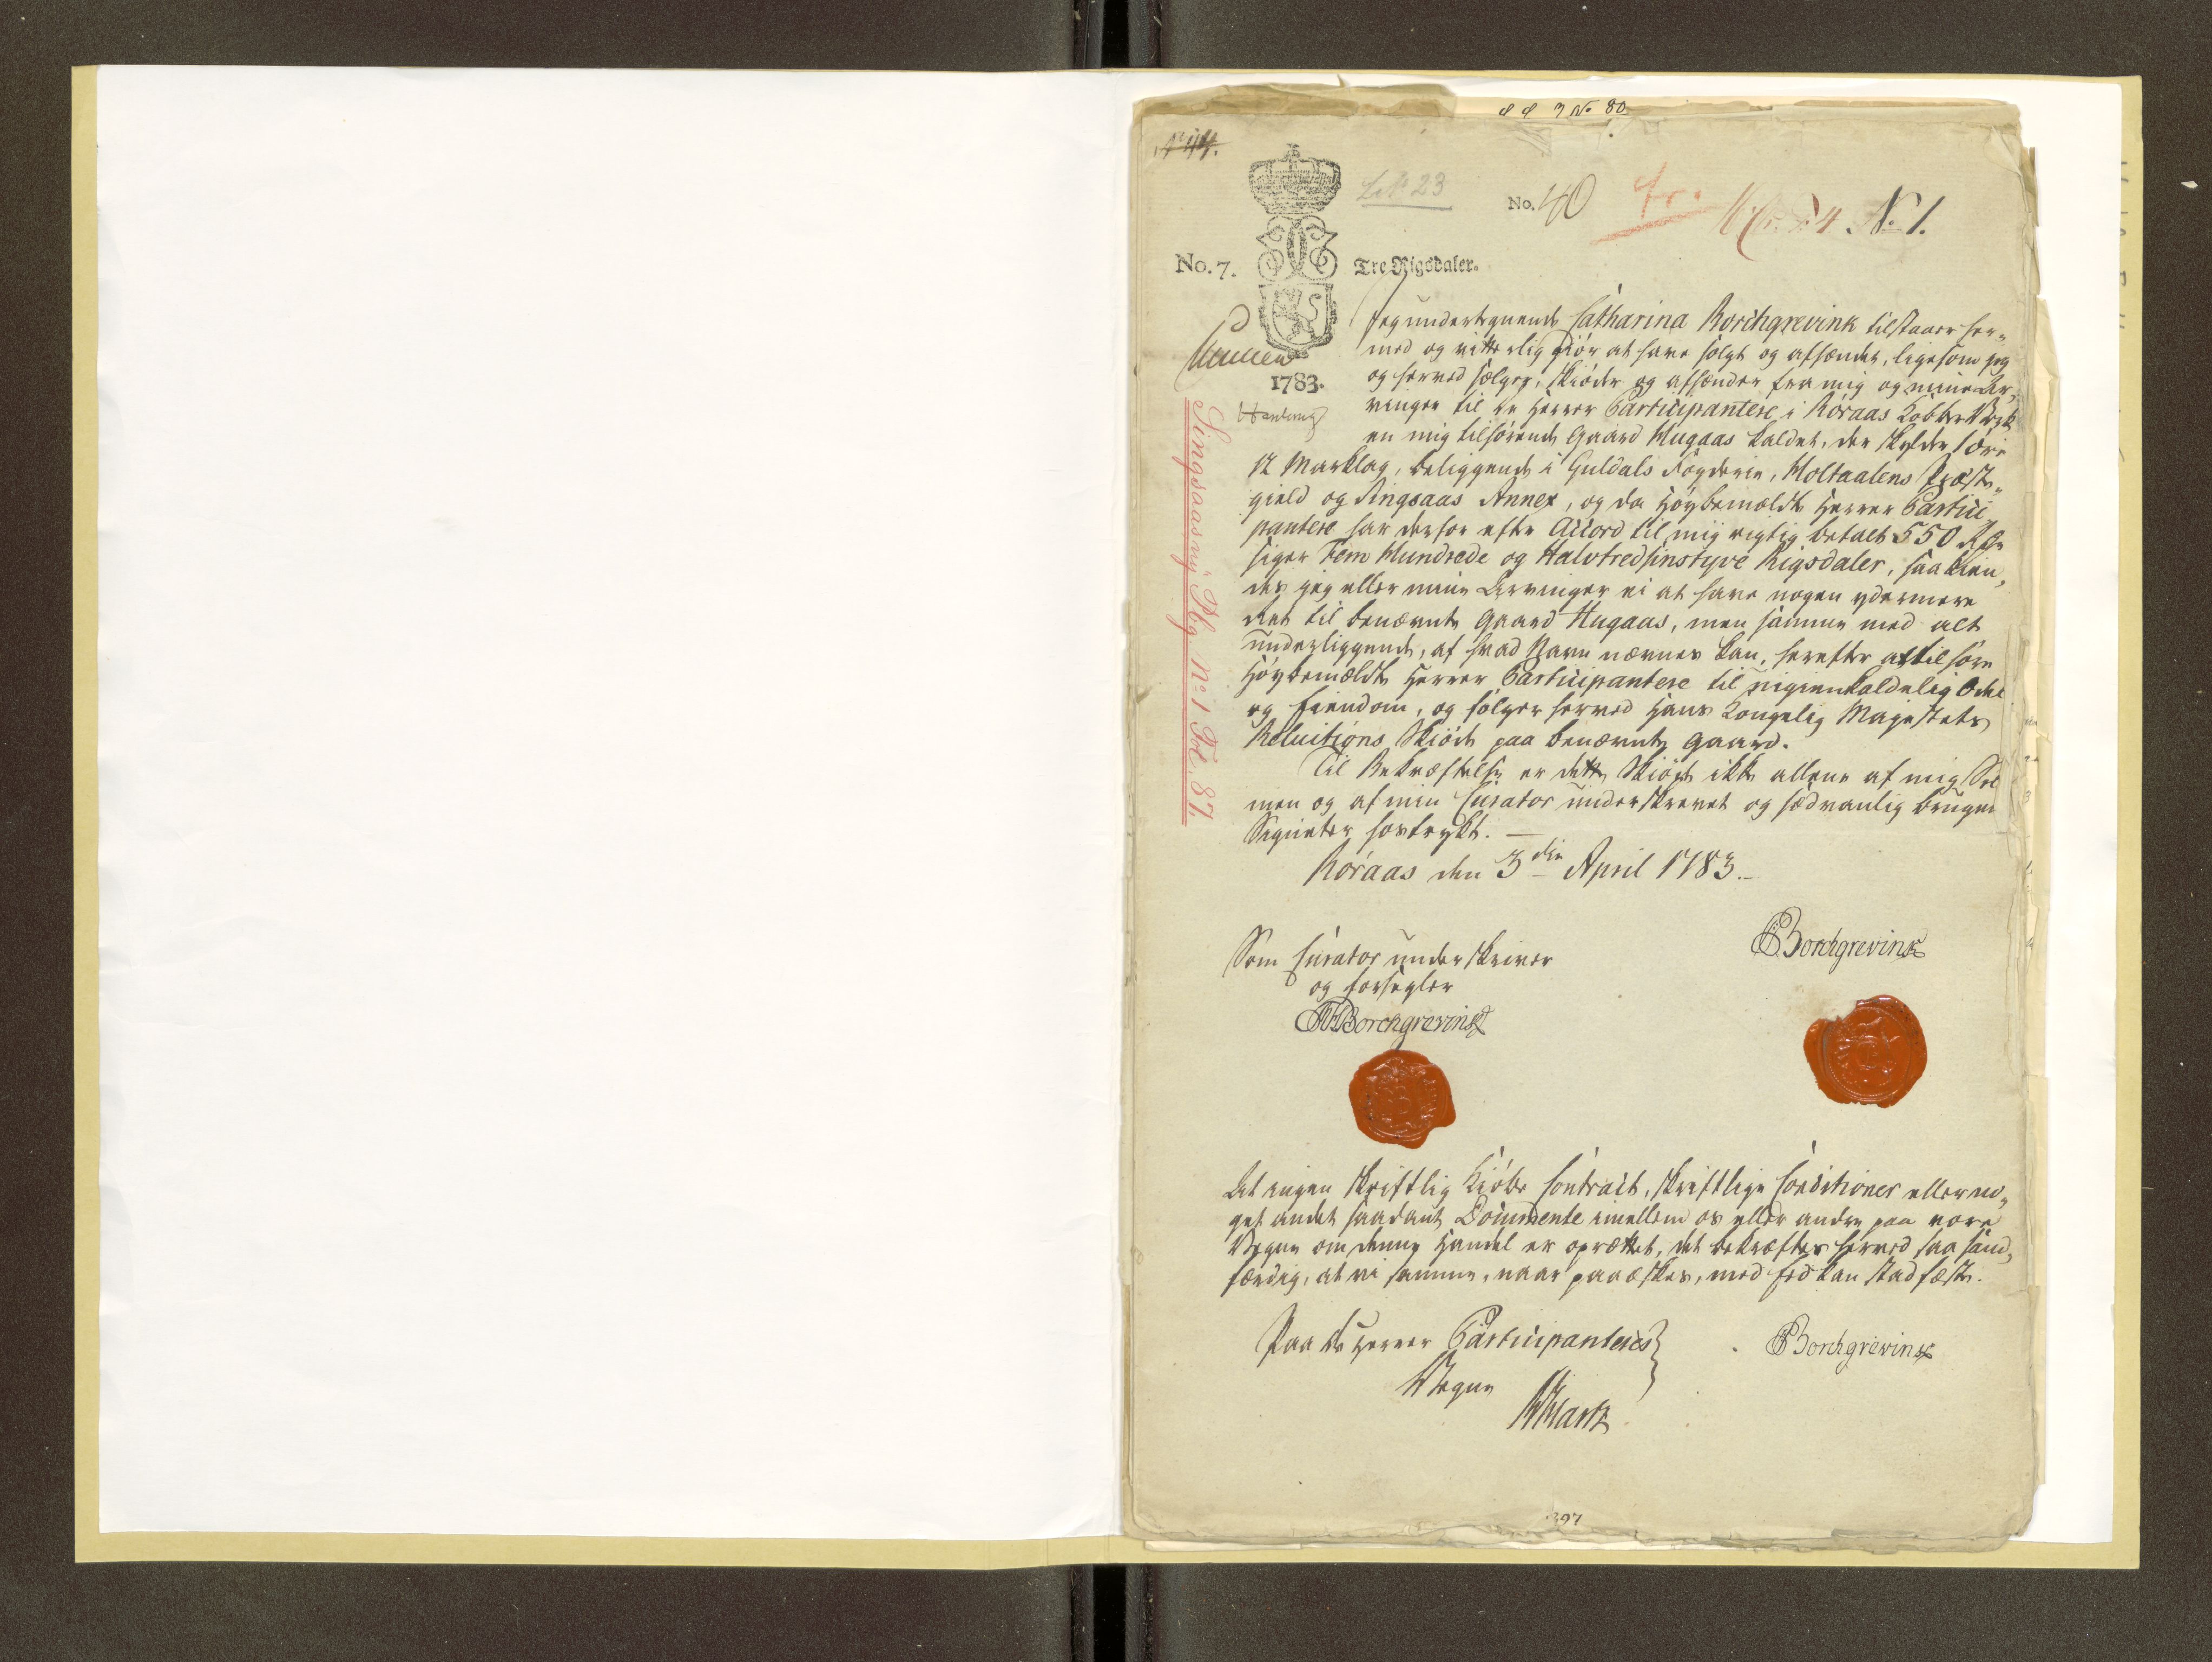 No 44.
Lit. 23
No. 40
No. 1.
No. 7.
Tre Rigsdaler.
1783.
Jeg undertegnende Catharina Borchgrevink tilstaaer her„
med og vitterlig giør at have solgt og afhændet, ligesom jeg
og herved sælger, skiøder og afhænder fra mig og mine Ar„
vinger til de Herrer Participantere i Röraas Kobber Værk
en mig tilhørende Gaard Hugaas kaldet, der skylder 1 Øre
12 Marklag, beliggende i Guldals Fogderie, Holtaalens Præste„
gield og Singsaas Annex, og da Høybemældte Herrer Partici
pantere har derfor efter Accord til mig rigtig betalt 550 Rdr
siger Fem Hundrede og Halvtredsinstyve Rigsdaler, saa kien„
des jeg eller mine Arvinger ei at have nogen ydermere
Ret til benævnte Gaard Hugaas, men samme med alt
underliggende, af hvad Navn nævnes kan, herefter at tilhøre
Høybemældte Herrer Participantere til uigienkaldelig Odel
og Eiendom, og følger herved Hans Kongelig Majestets
Reluitions Skiøde paa benævnte Gaard.
Til Bekræftelse er dette Skiøde ikke allene af mig Selv
men og af min Curator underskrevet og sædvanlig brugende
Signeter hostrykt. —
Röraas den 3die April 1783.
Singsaasny Pbg. No. 1 Fol. 87.
CBorchgrevink
Som Curator underskriver
og forsegler
Borchgrevink
At ingen skriftlig Kiøbe Contract, skriftlige Conditioner eller no„
get andet saadant Documente imellem os eller andre paa vore
Vegne om denne Handel er oprættet, det bekræftes herved saa sand„
færdig, at vi samme, naar paaæskes, med Eed kan stadfæste.
Paa de Herrer Participanteres
Vegne
CBorchgrevink
397